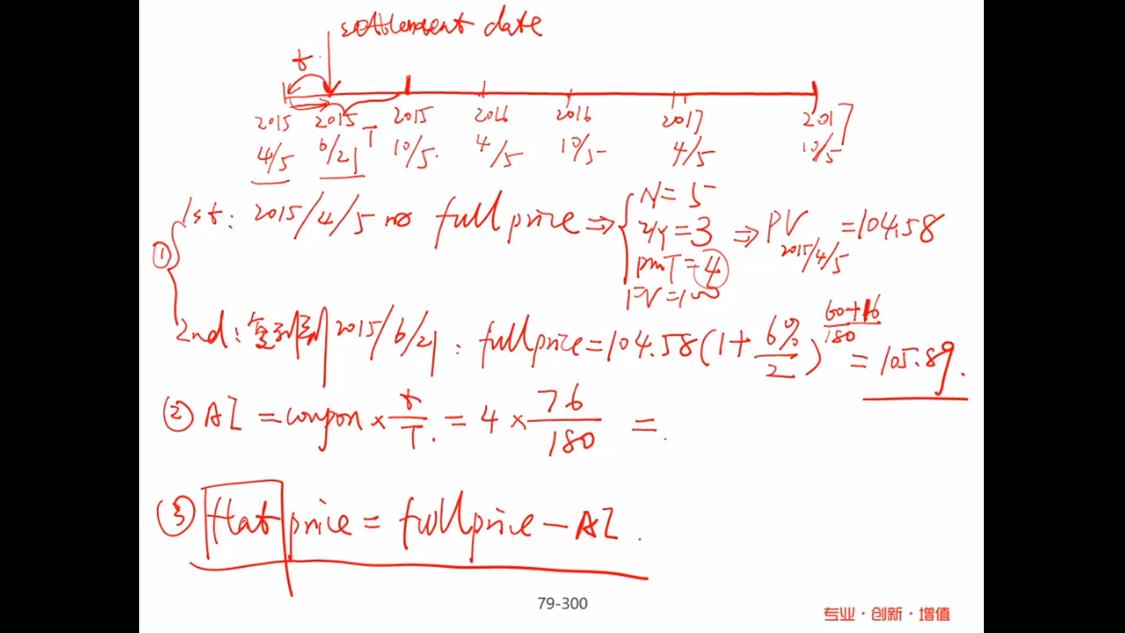 settlement date
t
2015 2015 2015 2016 2016 2017 2017
4/5 6/21 T 10/5 4/5 10/5 4/5 10/5
① 1st: 2015/4/5 full price ⇒ { N=5
I/Y=3 ⇒ PV 2015/4/5 =104.58
PMT=4
FV=100
2nd: 复利到 2015/6/21: full price=104.58(1+6%/2)^(60+16/180) =105.89.
② AI =coupon×t/T. =4×76/180 =.
③ flat price = full price-AI.
79-300
专业·创新·增值